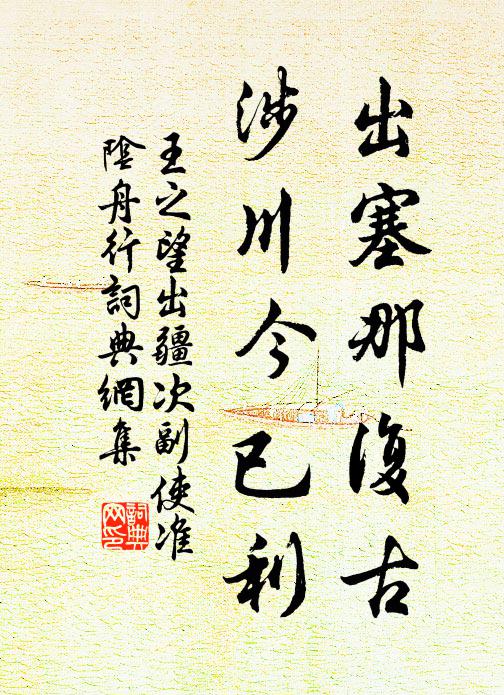 出塞那復古
涉川今已利
王之望出疆次副使淮
陰舟行詞典網集
詞典
网印